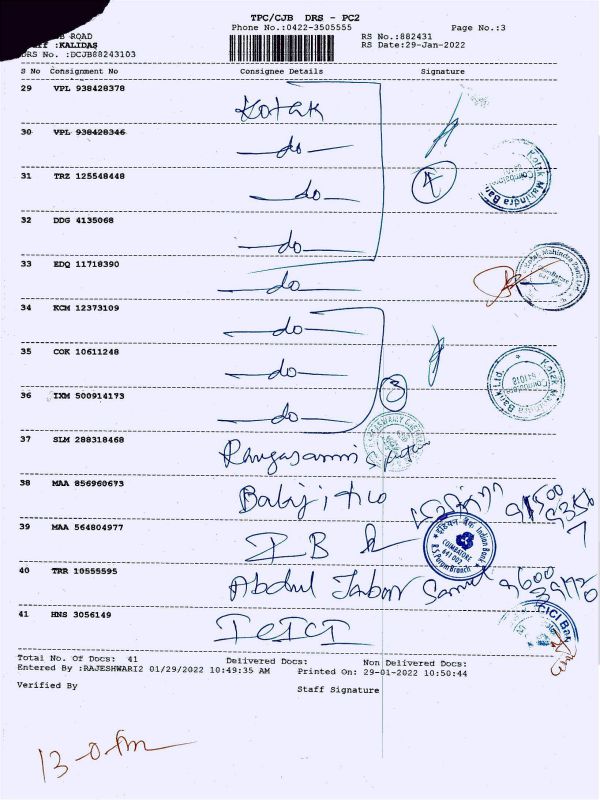 TPC/CJB DRS - PC2
Phone No.:0422-3505555 Page No.:3
B ROAD RS No.:882431
:KALIDAS RS Date:29-Jan-2022
DRS No. :DCJB88243103
S No Consignment No Consignee Details Signature
29 VPL 938428378 Kotak
30 VPL 938428346 do
31 TRZ 125548448 do
4
32 DDG 4135068 do
33 EDQ 11718390 do
34 KCM 12373109 do
35 COK 10611248 do
36 IXM 500914173 do
3
37 SLM 288318468 Rangasami
38 MAA 856960673 Balaji
39 MAA 564804977 IB
Indian Bank
COIMBATORE
641 002
Branch
40 TRR 10555595 Abdul
41 HNS 3056149 ICICI
ICICI Bank
Kotak Mahindra Bank Ltd.
Total No. Of Docs: 41 Delivered Docs: Non Delivered Docs:
Entered By :RAJESHWARI2 01/29/2022 10:49:35 AM Printed On: 29-01-2022 10:50:44
Verified By Staff Signature